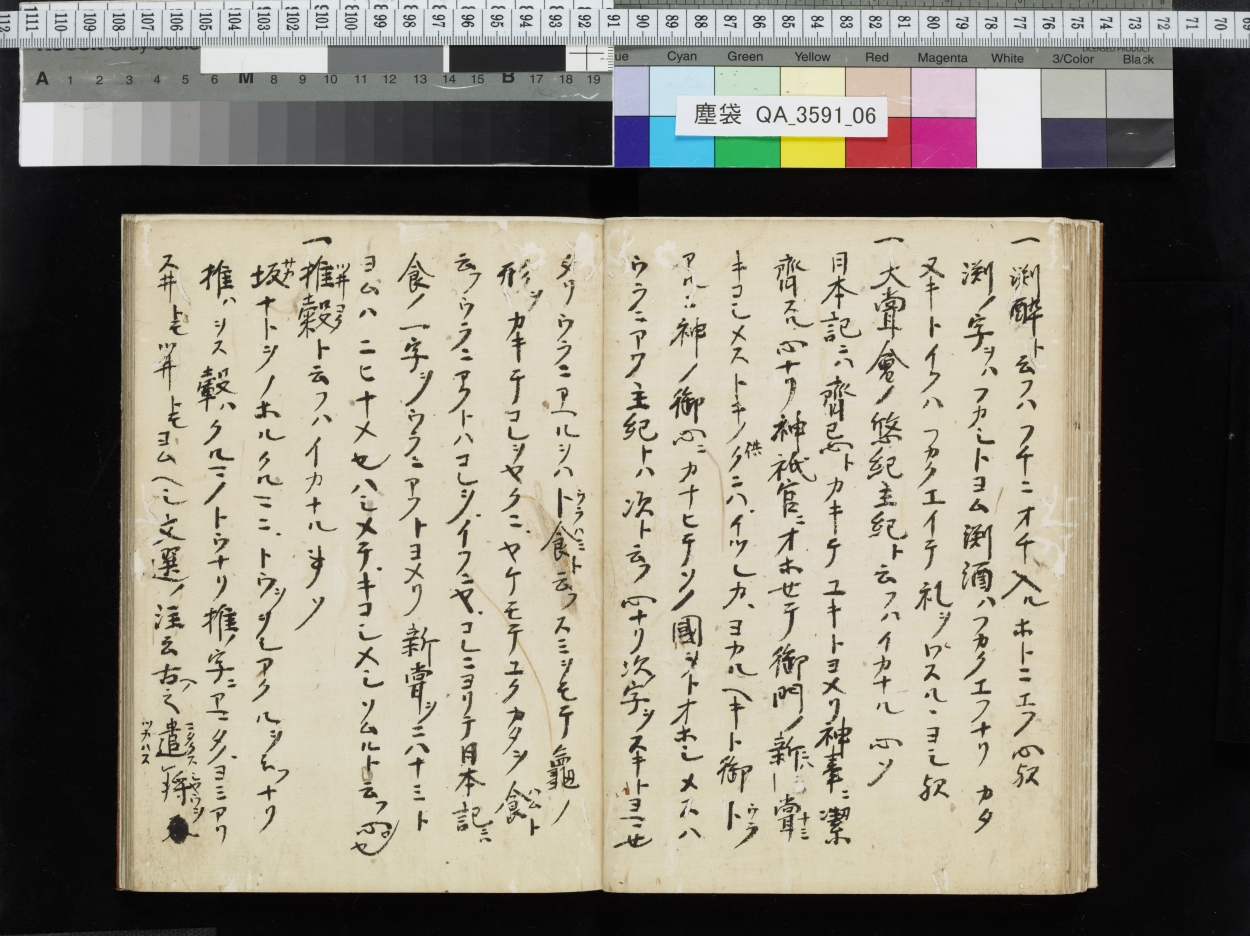 塵袋 QA_3591_06
一 渕酔ト云フハフチニオチ入ルホトニエフ心歟
渕ノ字ヲハフカシトヨム渕酒ハフカクエフナリ カタ
又キトイフハフカクエイテ礼ヲワスル、ヨシ歟
一 大嘗會ノ悠紀主紀ト云フハイカナル心ソ
日本記ニハ齋忌トカキテユキトヨメリ神事ニ潔
齋スル心ナリ神祇官ニオホセテ御門ノ新嘗
キコシメストキノクニハイツレカヨカルヘキト御ト
アルニ神ノ御心ニカナヒテソノ國ヲトオホシメスハ
ウラニアフ主紀トハ次ト云フ心ナリ次字ヲスキトヨマセ
タリウラニアヘルヲハト食ト云フスミヲモテ龜ノ
形ヲカキテコレヲヤクニヤケモテユクカタヲ食ハムト
云フウラニアフトハコレヲイフニヤコレニヨリテ日本記ニハ
食ノ一字ヲウラニアフトヨメリ新嘗ヲニハナミト
ヨムハニヒナメ也ハシメテキコシメシソムルト云フ心也
一 推轂ト云フハイカナル事ソ
坂ナトヲノホルクルマニトウヲシアクルヲ云フナリ
推ハヲス轂ハクルマノトウナリ推ノ字ニアマタノヨミアリ
スイトモツイトモヨムヘシ文選ノ注云古之遣將